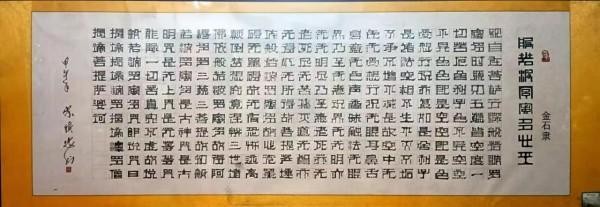 般若波羅蜜多心經
金石隶
觀自在菩薩行深般若波羅
蜜多時照見五蘊皆空度一
切苦厄舍利子色不異空空
不異色色即是空空即是色
受想行識亦復如是舍利子
是諸法空相不生不滅不垢
不淨不增不減是故空中无
色无受想行識无眼耳鼻舌
身意无色聲香味觸法无眼
界乃至无意識界无无明亦
无无明盡乃至无老死亦无
老死盡无苦集滅道无智亦
无得以无所得故菩提薩埵
依般若波羅蜜多故心无罣
礙无罣礙故无有恐怖遠離
顛倒夢想究竟涅槃三世諸
佛依般若波羅蜜多故得阿
耨多羅三藐三菩提故知般
若波羅蜜多是大神咒是大
明咒是无上咒是无等等咒
能除一切苦真實不虛故說
般若波羅蜜多咒即說咒曰
揭諦揭諦波羅揭諦波羅僧
揭諦菩提薩婆訶
甲午年